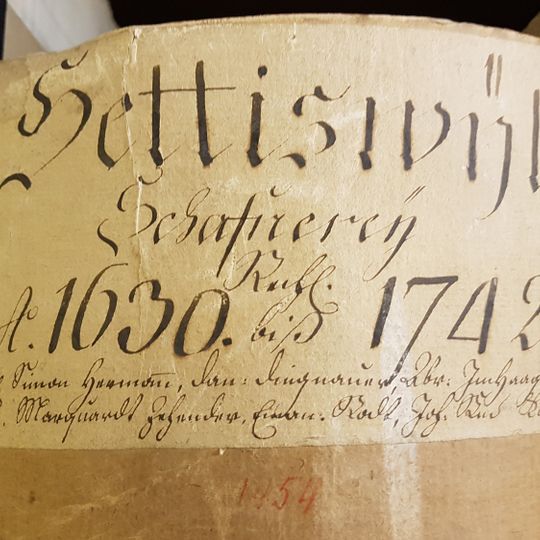 Hettiswÿl
Schafnereÿ
Rechn.
A. 1630. biß 1742
Simon Hermann, Dan: Dingnauer, Abr: ImHaag
Marquardt Zehender, Eman: Rodt, Joh. Rud
1454